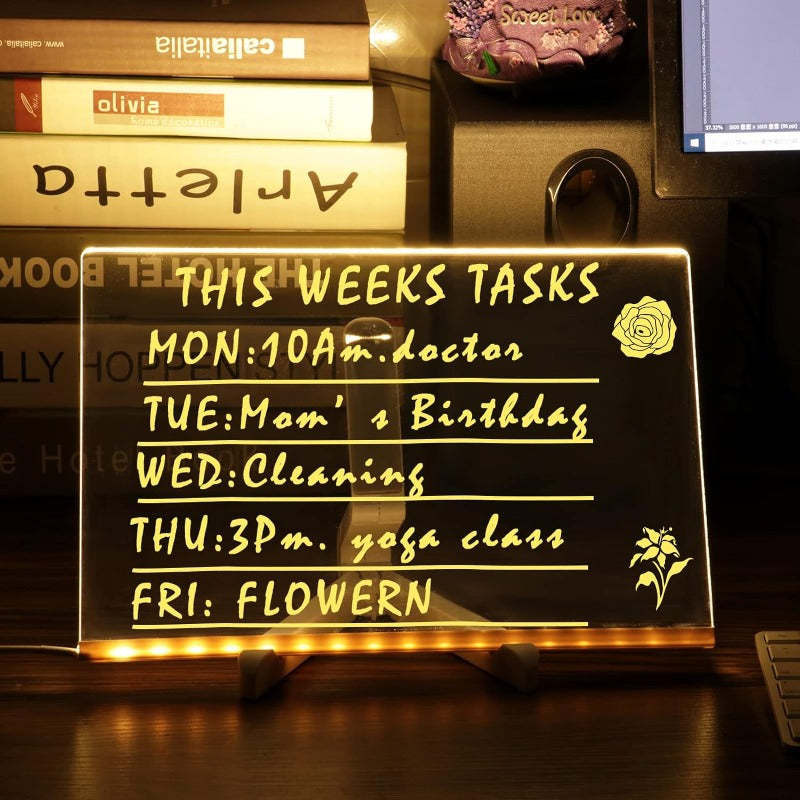 www.caliaitalia
caliaitalia
olivia
Home Decoration
Arletta
THE HOTEL BOOK
LLY HOPPEN STY
e Hote
Sweet Love
THIS WEEKS TASKS
MON:10Am.doctor
TUE:Mom's Birthdag
WED:Cleaning
THU:3Pm. yoga class
FRI: FLOWERN